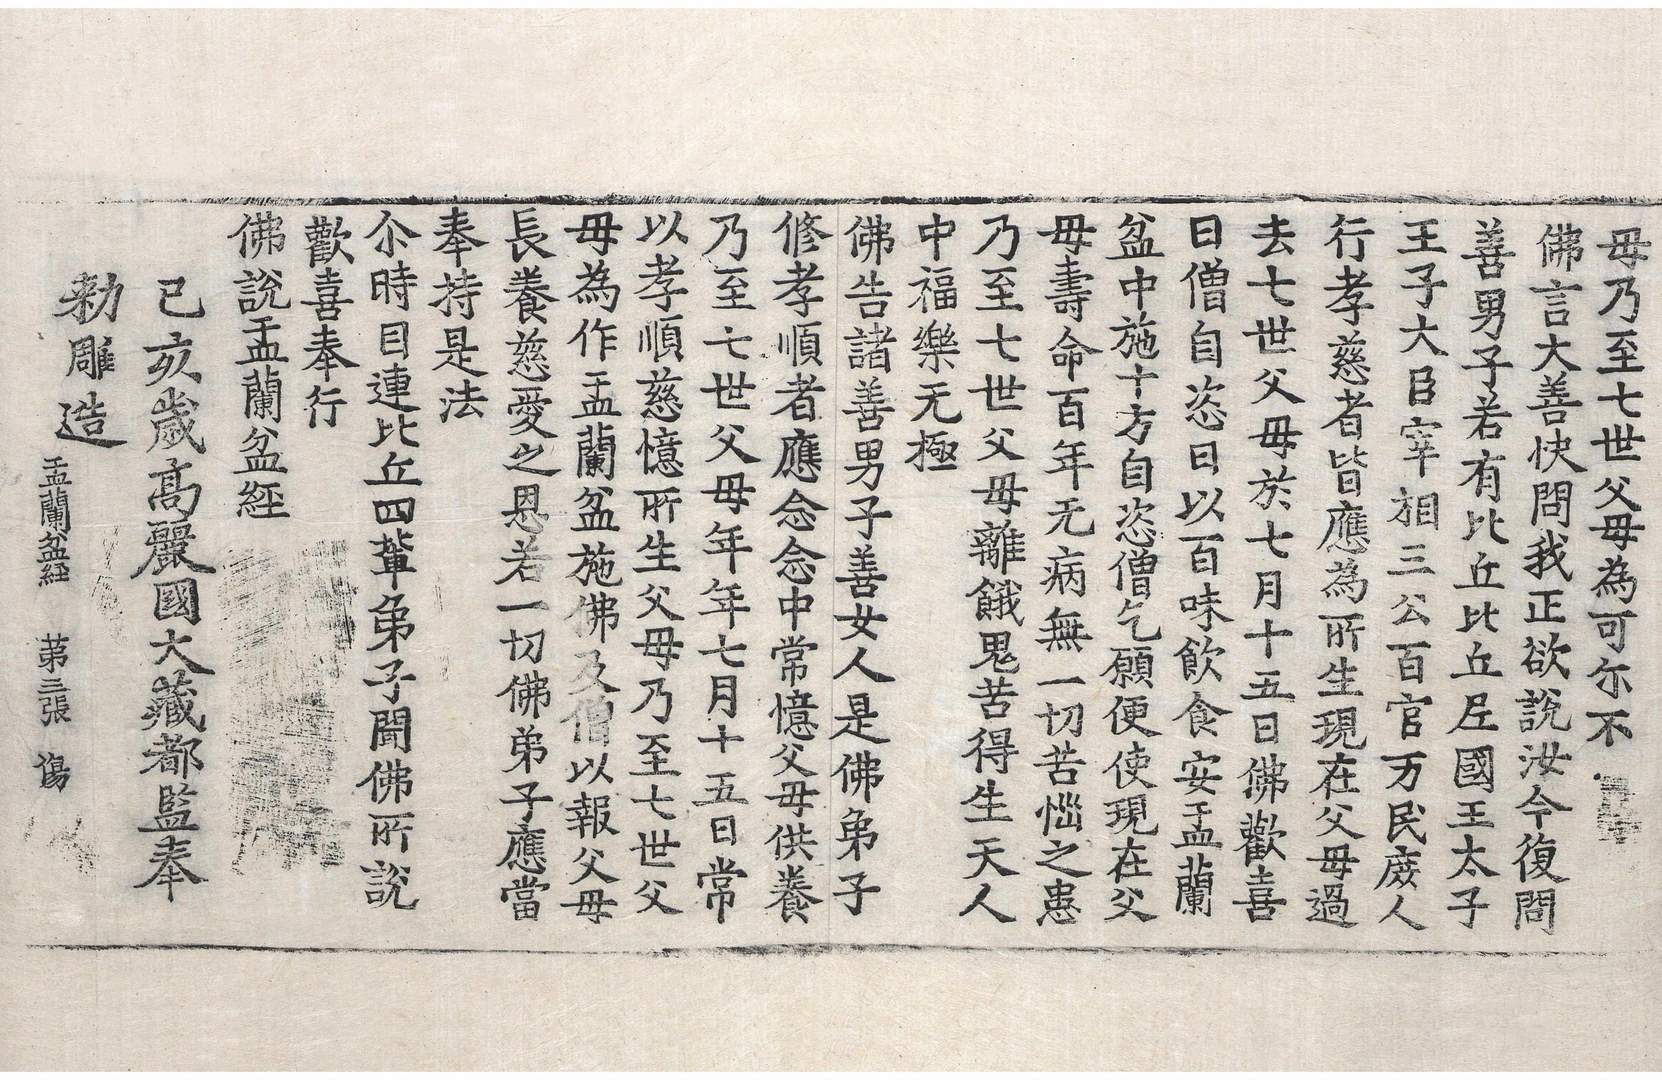 毋乃至七世父毋為可尒不
佛言大善快問我正欲說汝今復問
善男子若有比丘比丘尼國王太子
王子大臣宰相三公百官万民庻人
行孝慈者皆應為所生現在父毋過
去七世父毋於七月十五日佛歡喜
日僧自恣日以百味飲食安盂蘭
盆中施十方自恣僧乞願便使現在父
毋壽命百年无病無一切苦惱之患
乃至七世父毋離餓鬼苦得生天人
中福樂无極
佛告諸善男子善女人是佛弟子
修孝順者應念念中常憶父毋供養
乃至七世父毋年年七月十五日常
以孝順慈憶所生父毋乃至七世父
毋為作盂蘭盆施佛及僧以報父毋
長養慈愛之恩若一切佛弟子應當
奉持是法
尒時目連比丘四軰弟子聞佛所說
歡喜奉行
佛說盂蘭盆經
己亥歲高麗國大藏都監奉
勑雕造
盂蘭盆経 第三張 傷